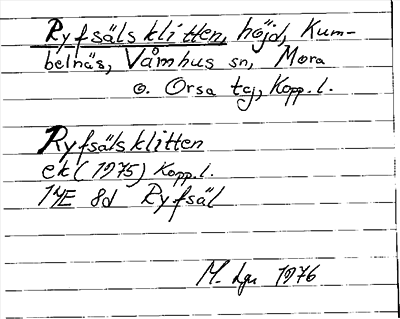 Ryfsälsklitten, höjd, Kum-
belnäs, Våmhus sn, Mora
o. Orsa tg, Kopp. l.
Ryfsälsklitten
ek (1975) Kopp. l.
14E 8d Ryfsäl
M. Lgn 1976